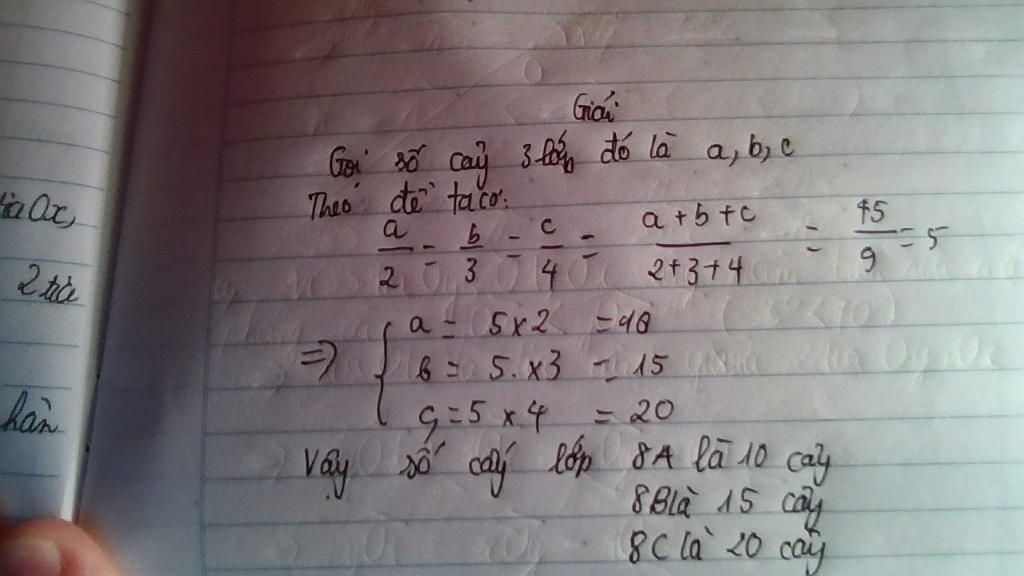 Giải
Gọi số cây 3 lớp đó là a, b, c
Theo đề ta có:
a/2 = b/3 = c/4 = a + b + c / 2 + 3 + 4 = 45/9 = 5
=> { a = 5 x 2 = 10
b = 5 . x 3 = 15
c = 5 x 4 = 20
Vậy số cây lớp 8A là 10 cây
8B là 15 cây
8C là 20 cây
Ox,
2 tia